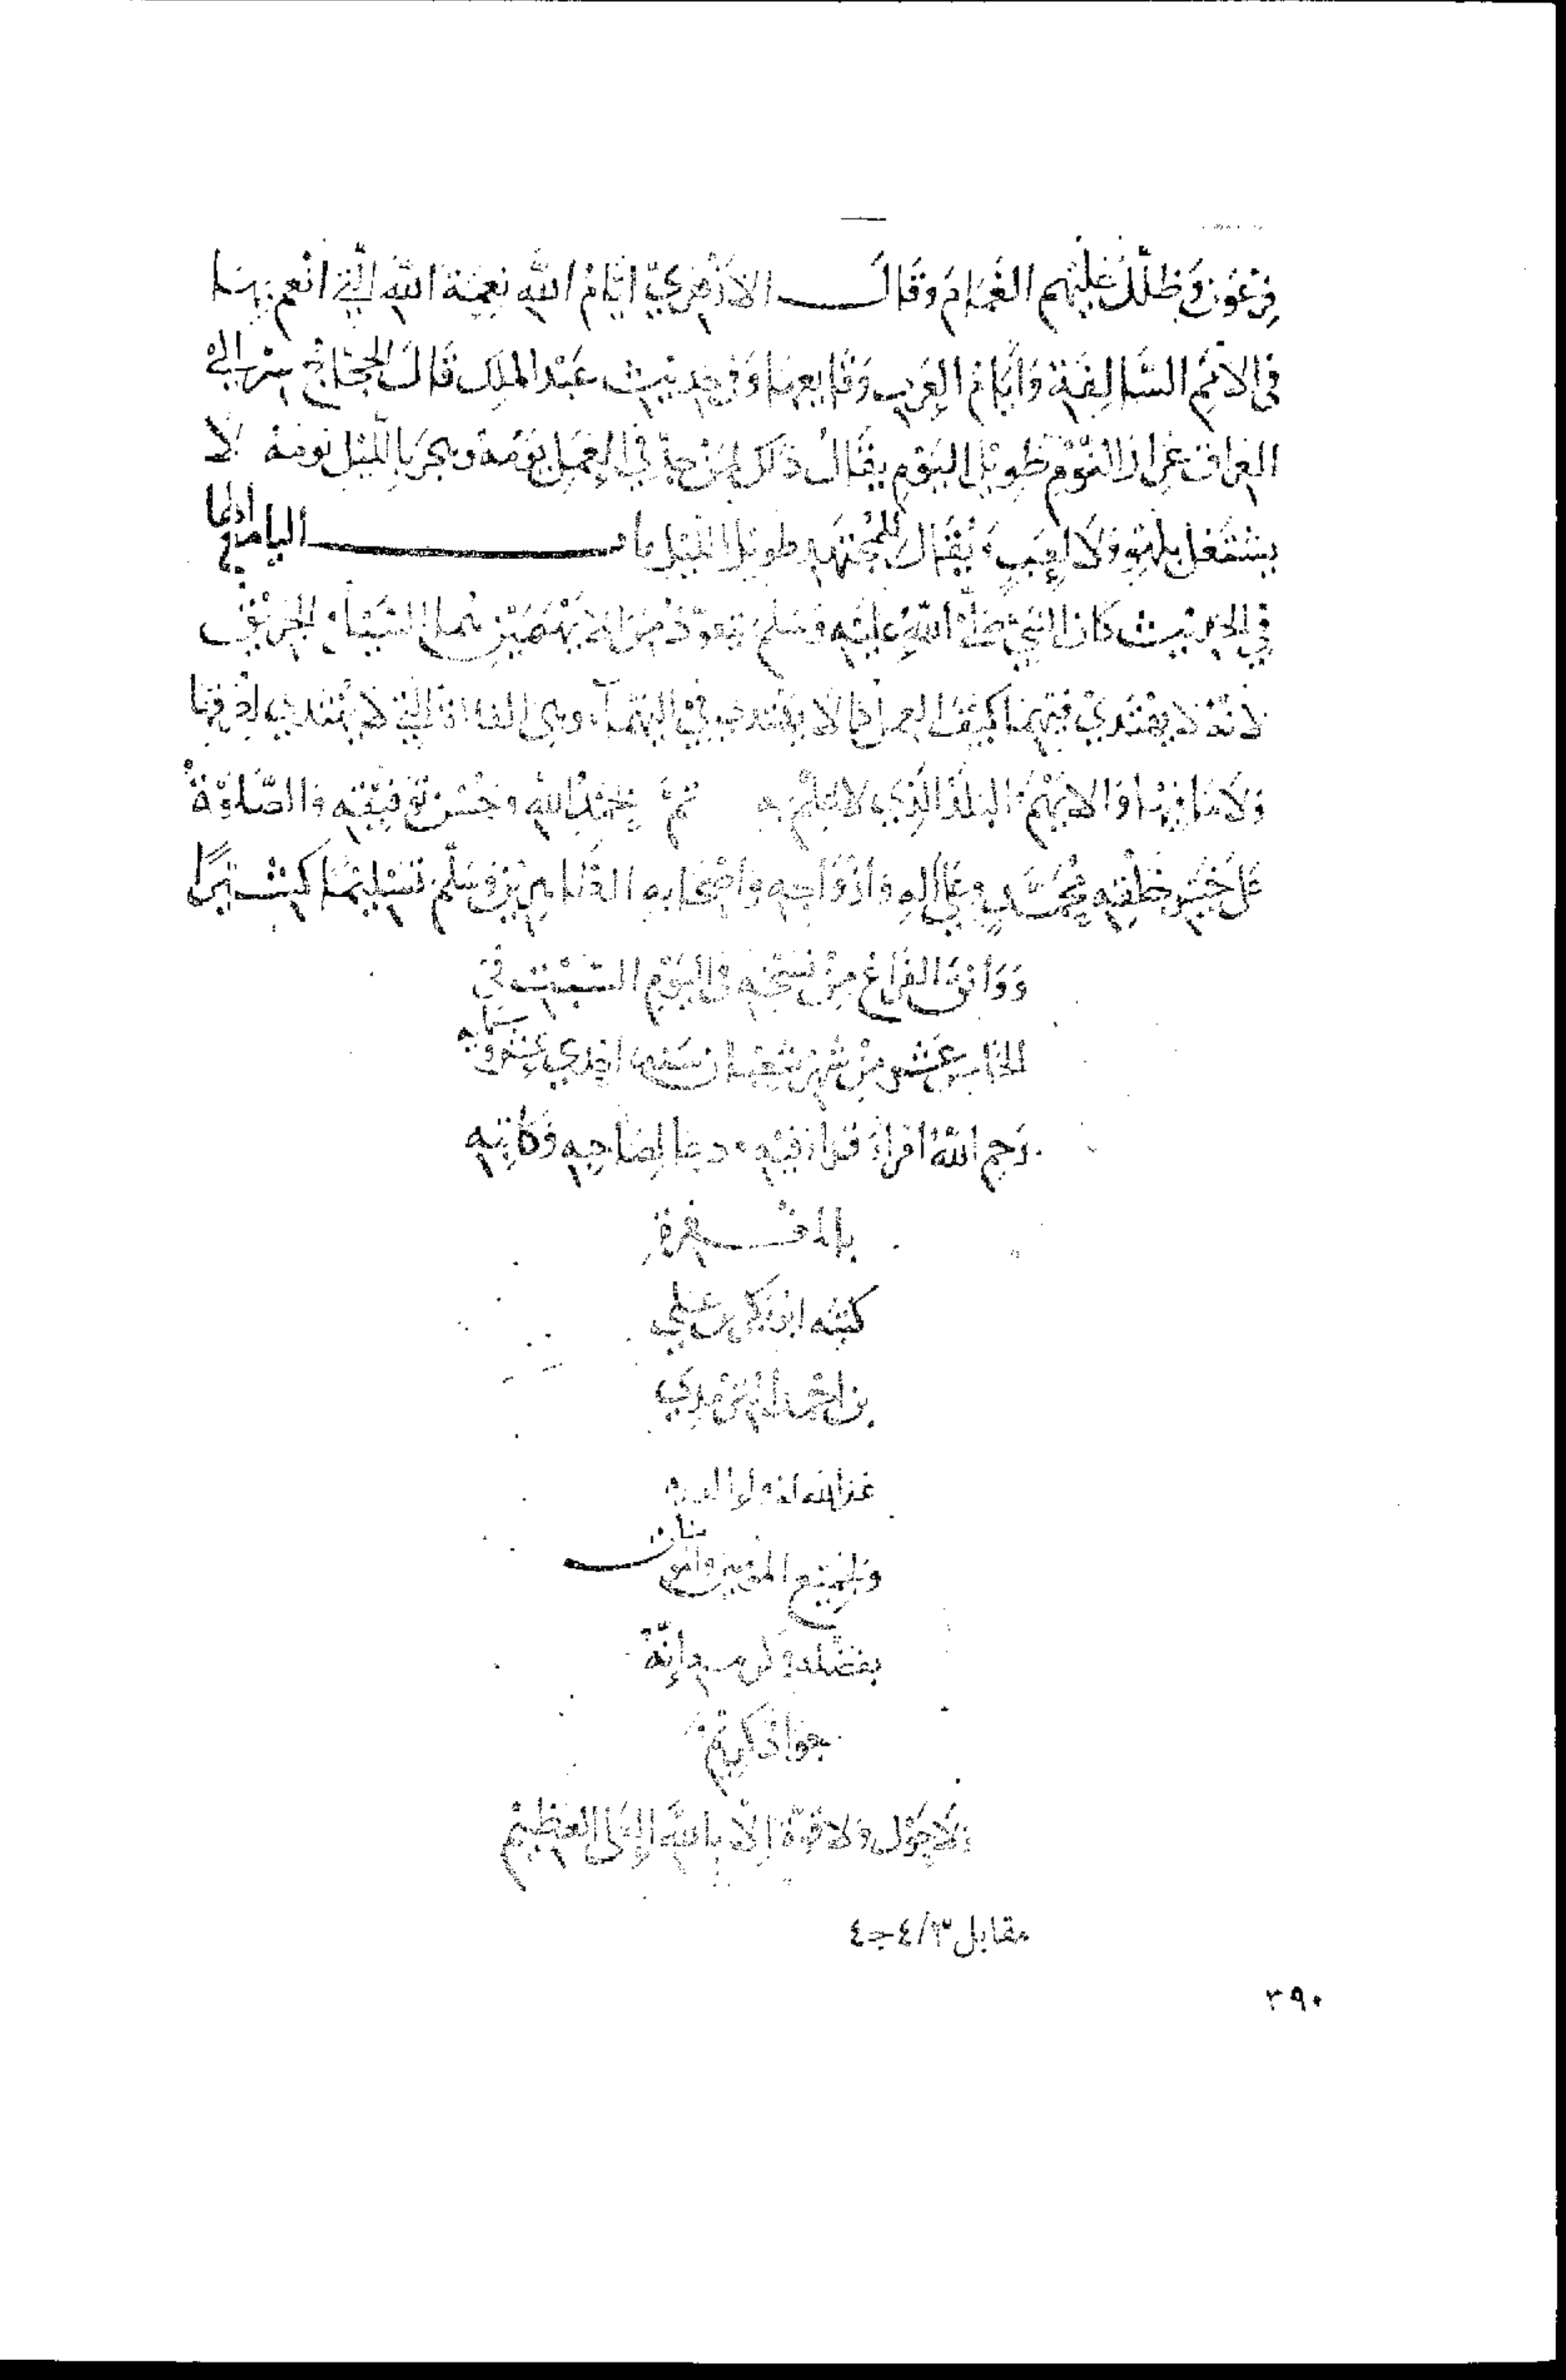 فِرْعَوْنَ وَظَلَّلَ عَلَيْهِم الغَمَامَ وَقَالَ الازْهَرِيّ ايّامُ اللهِ نِعمَة اللهِ الّتي انْعم بِهَا
في الامَم السَّالِفَة وَأيّامُ العَرب وَقَايعهَا وَفي حديث عَبْد الملِك قَالَ للحجّاج سِرْ الى
العراق غرار النَّوْم طويل اليَوْم يقَالُ ذلكَ لمنْ جدّ في العَمَل يَوْمهُ وَ باللّيْل نومهُ لا
يشتغل بلهْو وَلا لعِبٍ وَيُقَال للمُجْتهِد طويل اللّيْل البا مع الها
في الحديث كان النبيّ صلّى اللهُ عليْه وسلم يتعوّذ من الايْهَمَيْن السّيْل والحَريْق
لانّهُ لا يهْتدي فيهما كيفَ العمل كما لا يهتدى في اليَهْمَآء وهي الفلاة الّتي لا يُهتدى لطرقها
وَلا مَا فيهَا وَالايْهَمُ البَلَدُ الّذي لا عَلَمَ بِه تمّ بحمْدِ اللهِ وحُسْن تَوْفِيْقِه والصَّلوٰةُ
عَلى خَيْر خلقِه محمَّدٍ وعلى الِه وَازْوَاجِه وَاصْحَابِه الطَّاهِرِيْن وَسَلّم تَسْلِيْمًا كثيْرًا
وَوَافَقَ الفَرَاغ مِنْ نَسْخِه في اليَوْم السَّبْت في
الخامس عشر مِنْ شهْر شعْبَان سَنَة احْدي عشر وستمايه
رَحِم اللهُ امْرَأً قرأ فيْهِ ودعَا لِصَاحِبِه وَكَاتِبِه
بالمَغْفِرَة
كتبَه ابو بكر بن علي
بن احْمَد
غفر الله له ولوالديه
وَلجمِيْع المؤمنين والمؤمنات
بفضْله وكرمه إنّهُ
جوادٌ كريمٌ
ولاحَوْل وَلا قوّة إلّا باللهِ العَلى العَظِيْم
مقابل ٤/٣ جـ٤
٣٩٠